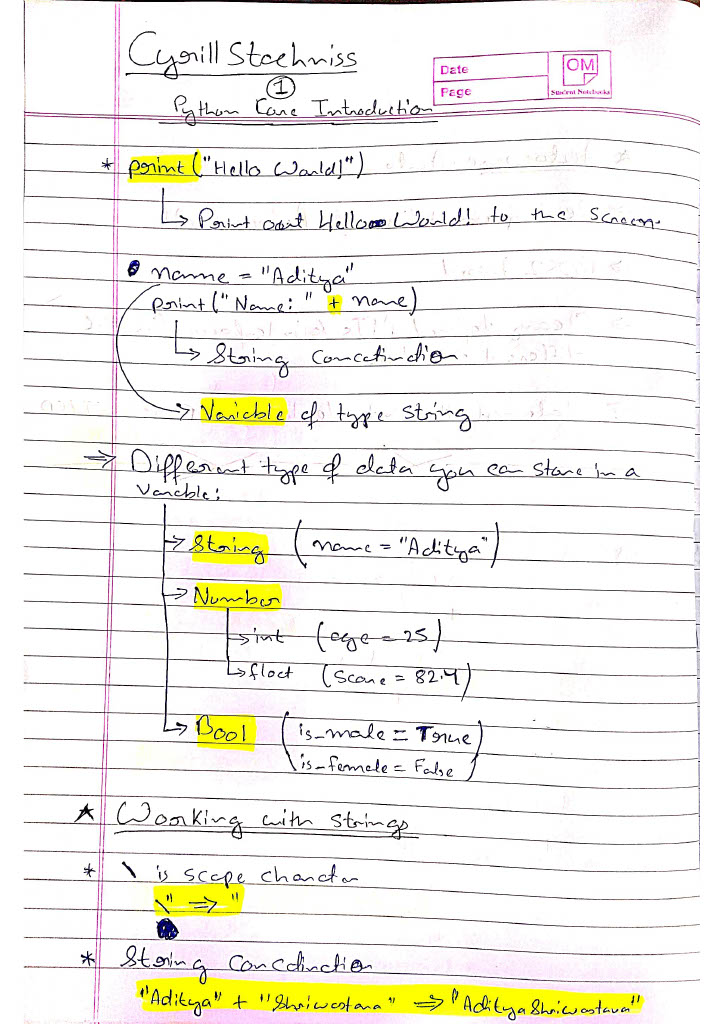 Cyrill Stachniss
Date
Page
OM
Student Notebooks
1
Python Core Introduction
* print("Hello World!")
↳ Print out Hello World! to the Screen.
• name = "Aditya"
print("Name: " + name)
↳ String Concatination
→ Variable of type string
⇒ Different type of data you can store in a
Variable:
→ String (name = "Aditya")
→ Number
→ int (age = 25)
↳ float (Score = 82.4)
↳ Bool (is_male = True
is_female = False)
★ Working with strings
* \ is scape charater
\" ⇒ "
* String Concatination
"Aditya" + "Shriwastava" ⇒ "AdityaShriwastava"